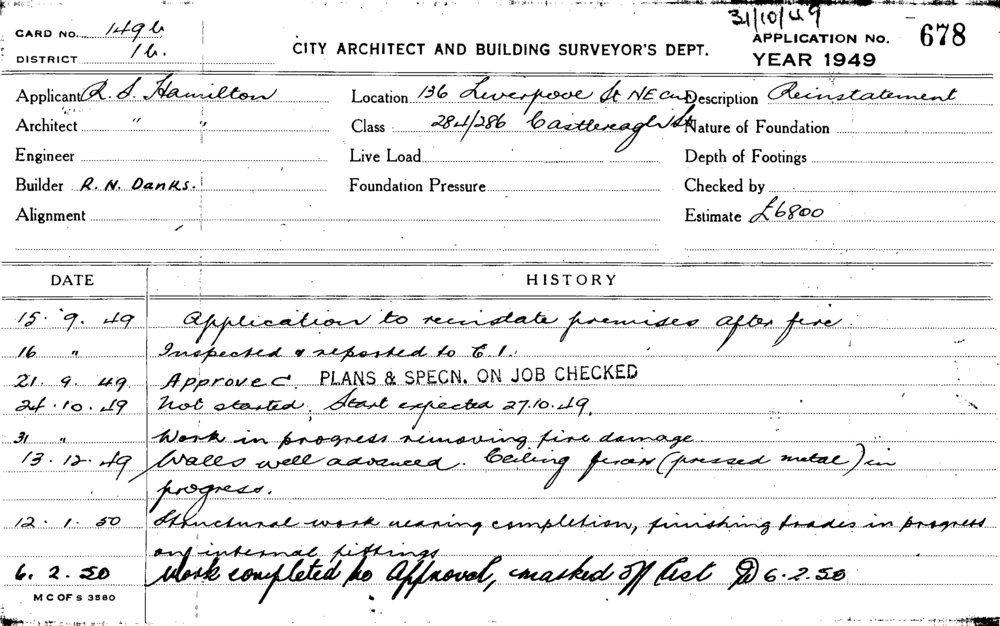 31/10/49
CARD NO. 149b
DISTRICT 16.
CITY ARCHITECT AND BUILDING SURVEYOR'S DEPT.
APPLICATION NO. 678
YEAR 1949
Applicant R. S. Hamilton
Location 136 Liverpool St NE Cnr
Description Reinstatement
Architect " "
Class 284/286 Castlereagh St
Nature of Foundation
Engineer
Live Load
Depth of Footings
Builder R. N. Danks.
Foundation Pressure
Checked by
Alignment
Estimate £6800
DATE HISTORY
15. 9. 49 Application to reinstate premises after fire.
16 " Inspected & reported to C.I.
21. 9. 49. Approved PLANS & SPECN. ON JOB CHECKED
24.10.49 Not started. Start expected 27.10.49.
31 " Work in progress removing fire damage.
13.12.49 Walls well advanced. Ceiling (pressed metal) in
progress.
12. 1. 50 Structural work nearing completion, finishing trades in progress
on internal fittings
6. 2. 50 Work completed to Approval, marked off List 6.2.50
M C OF S 3580